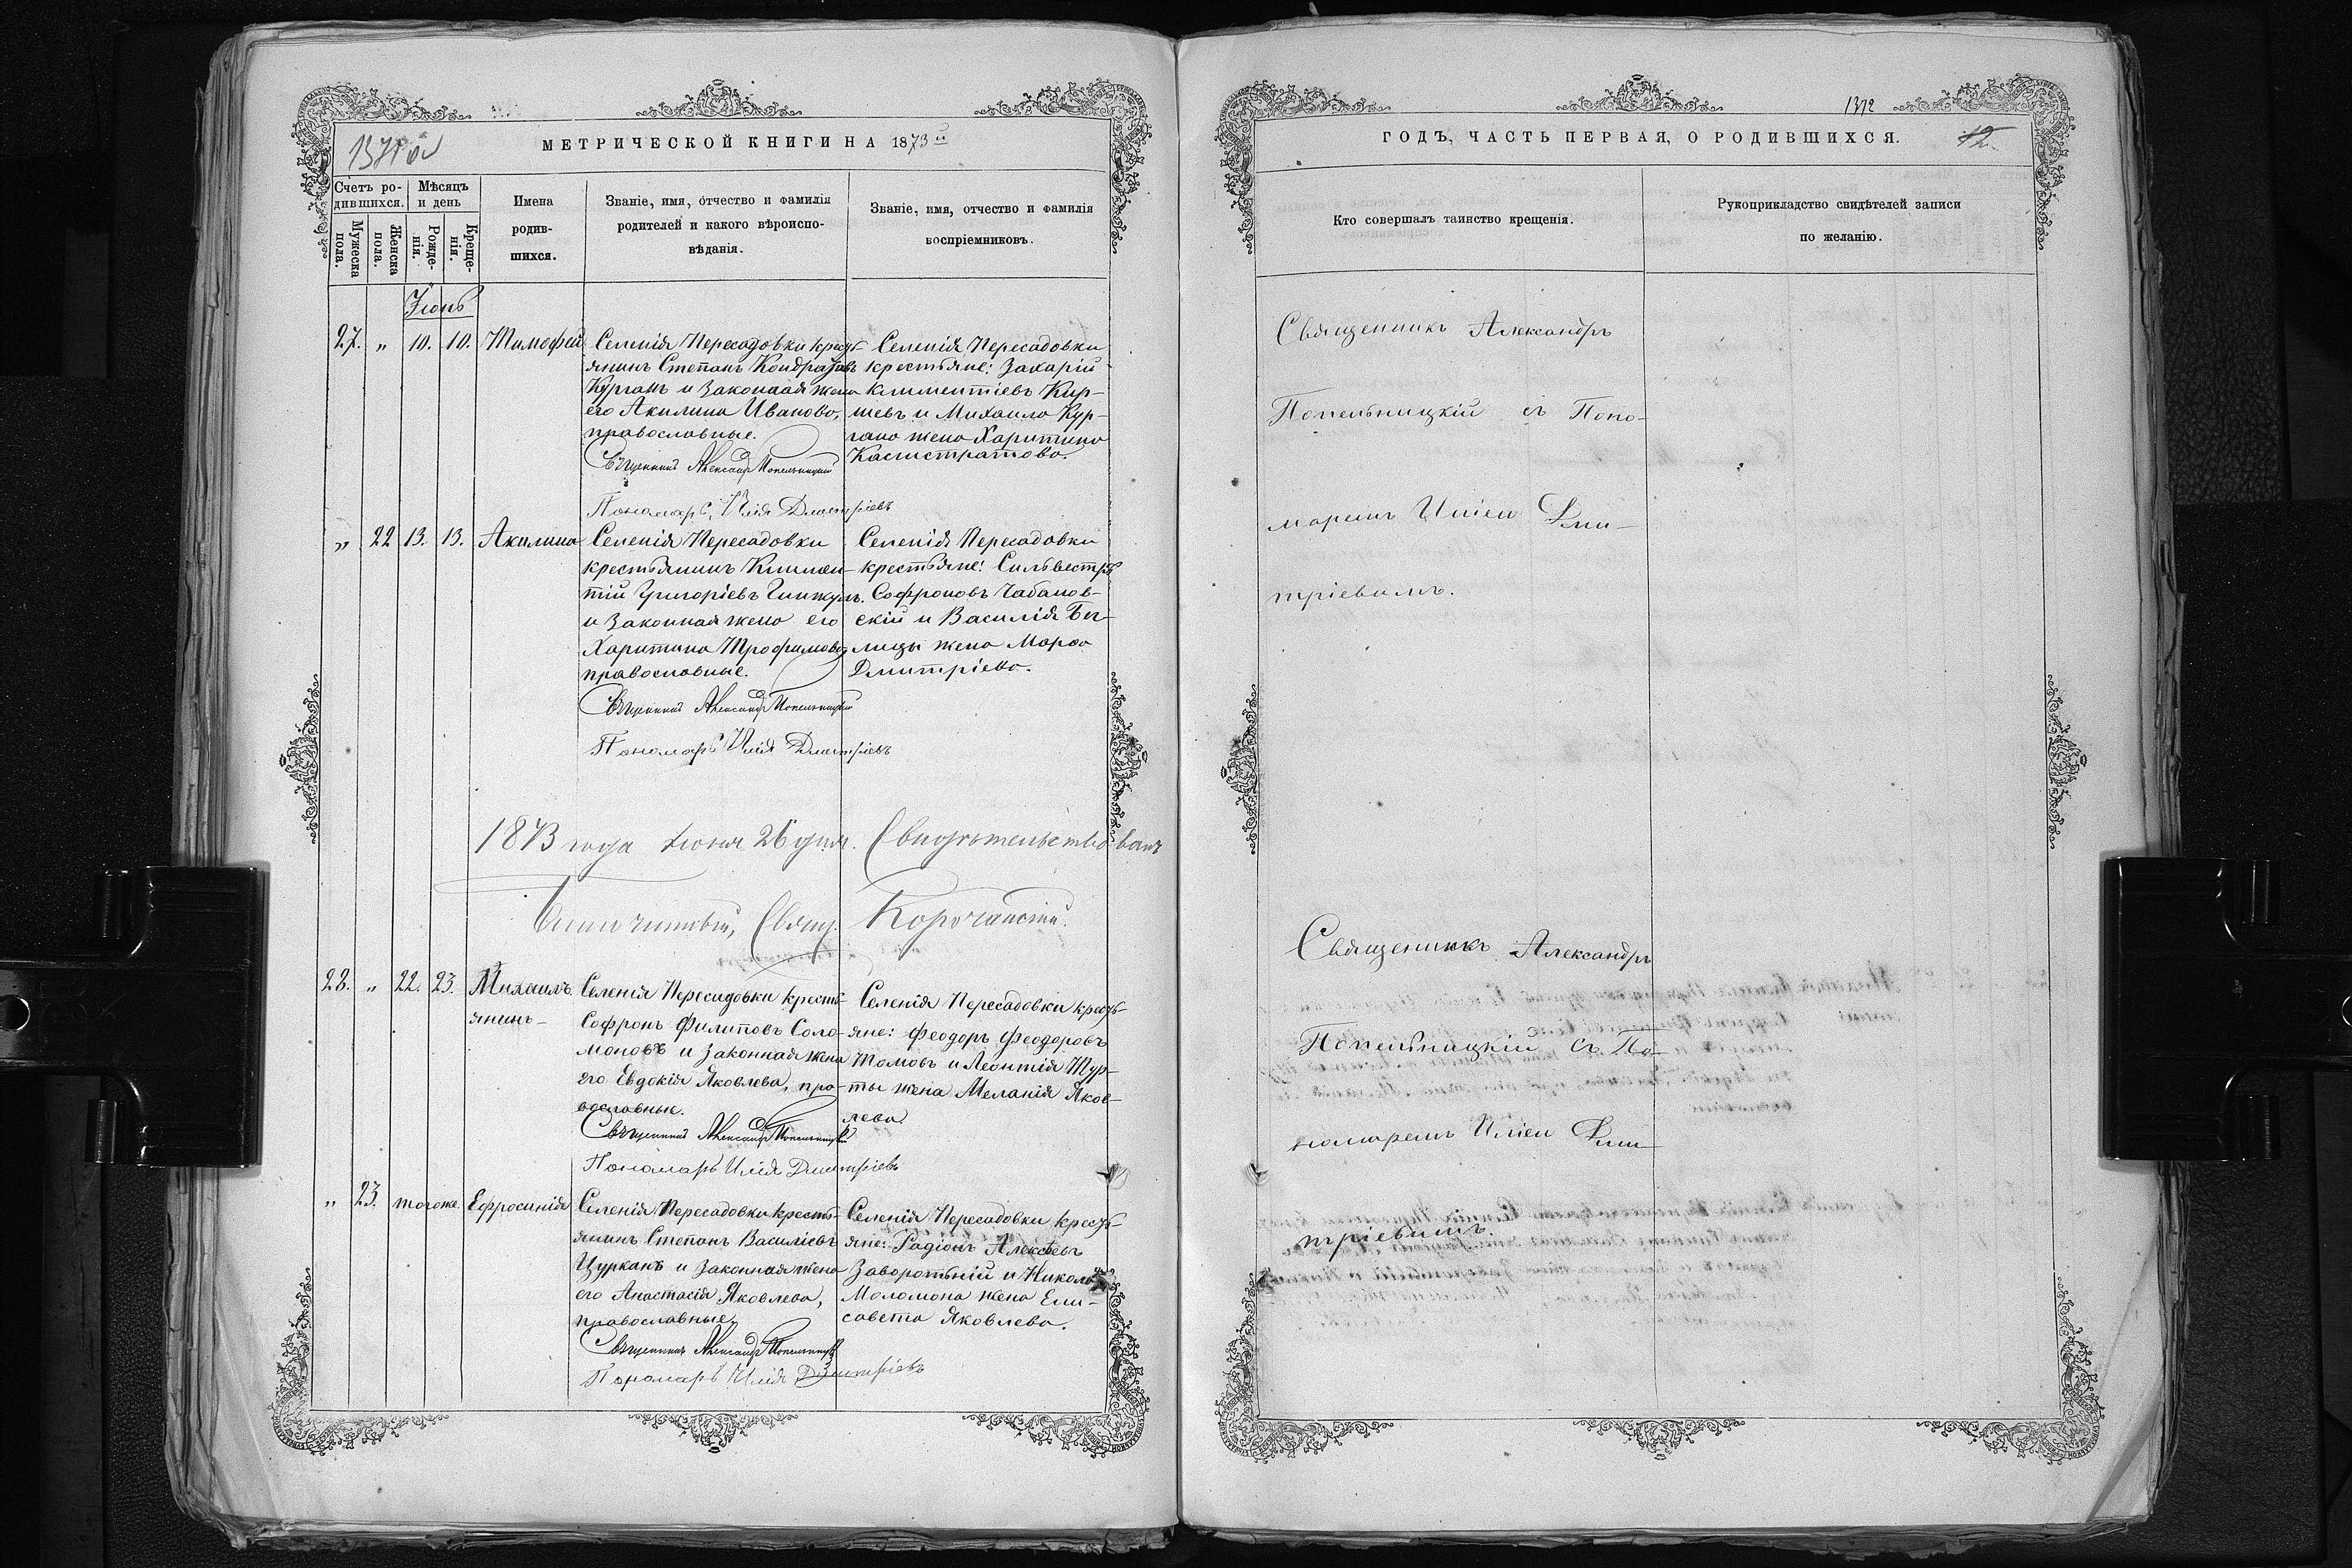 МЕТРИЧЕСКОЙ КНИГИ НА 1873й
Счетъ ро-
дившихся.
Мѣсяцъ
и день
Мужеска
пола.
Женска
пола.
Рожде-
нія.
Креще-
нія.
Имена
родив-
шихся.
Званіе, имя, отчество и фамилія
родителей и какого вѣроиспо-
вѣданія.
Званіе, имя, отчество и фамилія
воспріемниковъ.
Іюнь
27. „ 10. 10. Тимофей
Селенія Пересадовки кресть-
янинъ Степанъ Кондратовъ
Курганъ и законная жена
его Акилина Иванова,
православные.
Священникъ Александръ Попельницкій
Пономарь Илія Дмитріевъ
Селенія Пересадовки
крестьяне: Захарій
Климентіевъ Кир-
шевъ и Михаила Кур-
гана жена Харитина
Калистратова.
„ 22 13. 13. Акилина
Селенія Пересадовки
крестьянинъ Климен-
тій Григоріевъ
и законная жена его
Харитина Трофимова
православные.
Священникъ Александръ Попельницкій
Пономарь Илія Дмитріевъ
Селенія Пересадовки
крестьяне: Сильвестръ
Софроновъ Чабанов-
скій и Василія Бы-
лицы жена Марѳа
Дмитріева.
1873 года Іюня 26 дня. Свидѣтельствовалъ
Благочинный, Свящ. Корочанскій.
28. „ 22. 23. Михаилъ
Селенія Пересадовки кресть-
янинъ
Софронъ Филиповъ Соло-
моновъ и законная жена
его Евдокія Яковлева, пра-
вославные.
Священникъ Александръ Попельницкій
Пономарь Илія Дмитріевъ
Селенія Пересадовки кресть-
яне: Феодоръ Феодоровъ
Томовъ и Леонтія Тур-
ты жена Меланія Яков-
лева.
„ 23. тогоже. Ефросинія
Селенія Пересадовки кресть-
янинъ Степанъ Василіевъ
Цурканъ и законная жена
его Анастасія Яковлева,
православные.
Священникъ Александръ Попельницкій
Пономарь Илія Дмитріевъ
Селенія Пересадовки кресть-
яне: Радіонъ Алексѣевъ
Заворотній и Николая
Моломона жена Ели-
савета Яковлева.
1372
ГОДЪ, ЧАСТЬ ПЕРВАЯ, О РОДИВШИХСЯ.
12.
Кто совершалъ таинство крещенія.
Рукоприкладство свидѣтелей записи
по желанію.
Священникъ Александръ
Попельницкій съ Поно-
маремъ Иліею Дми-
тріевымъ.
Священникъ Александръ
Попельницкій съ По-
номаремъ Иліею Дми-
тріевымъ.